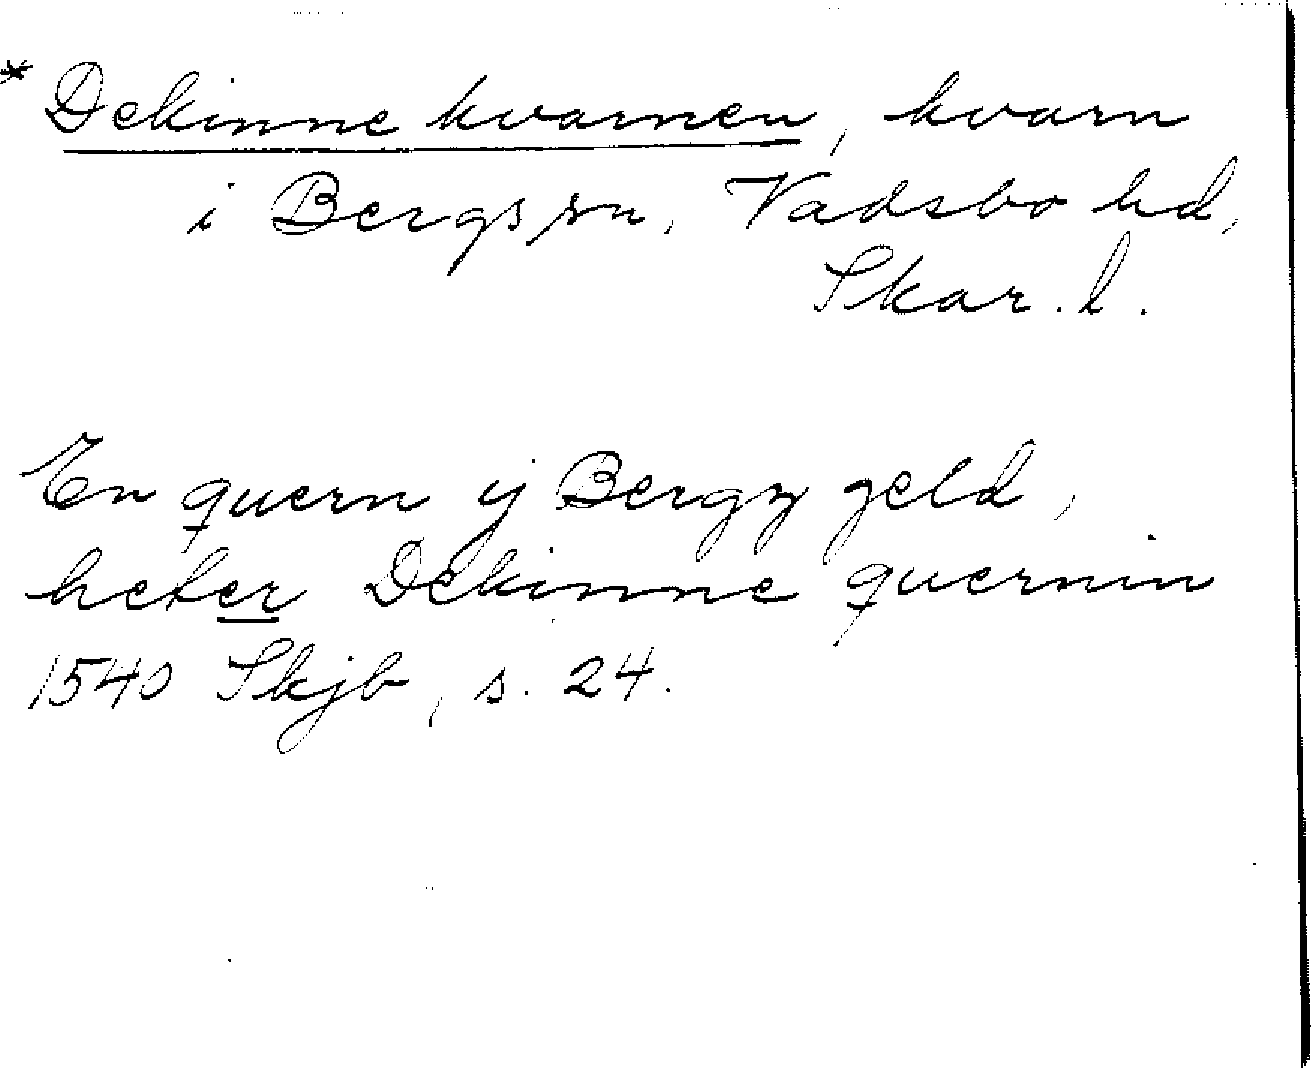 * Dekinne kvarnen, kvarn
i Bergs sn, Vadsbo hd,
Skar. l.
En quern ij Bergz geld,
heter Dekinne quernin
1540 Skjb, s. 24.